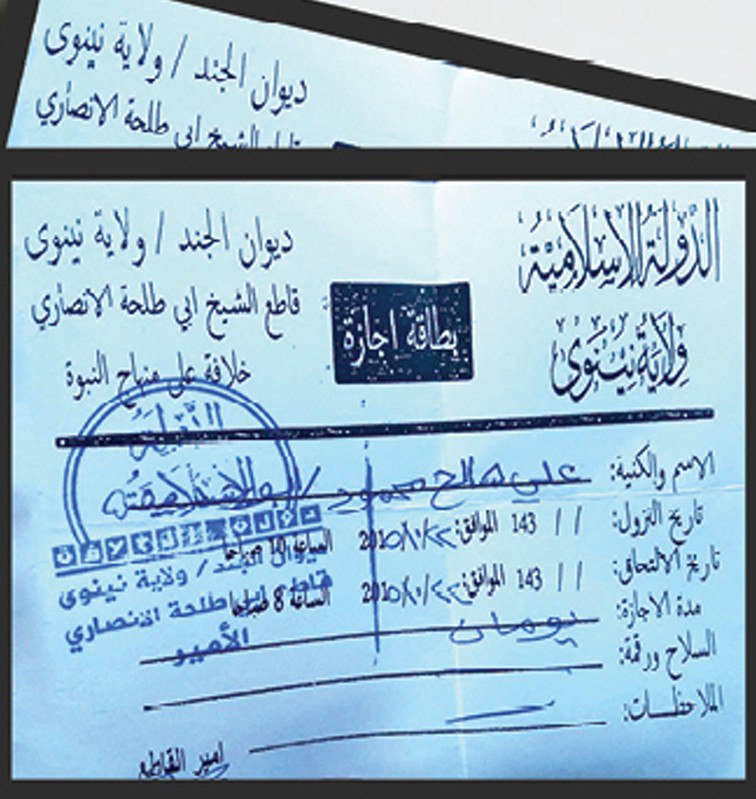 ديوان الجند / ولاية نينوى
قاطع الشيخ ابي طلحة الانصاري
الدولة الإسلامية
ولاية نينوى
ديوان الجند / ولاية نينوى
قاطع الشيخ ابي طلحة الانصاري
خلافة على منهاج النبوة
بطاقة اجازة
الاسم والكنية: علي صالح محمود /
تاريخ النزول: / / 143 الموافق: 2015/10/22 الساعة 10 صباحا
تاريخ الالتحاق: / / 143 الموافق: الساعة 8 صباحا
مدة الاجازة: يومان
السلاح ورقمة:
الملاحظات:
امير القاطع
الدولة
الإسلامية
ديوان الجند / ولاية نينوى
قاطع ابي طلحة الانصاري
الأمير